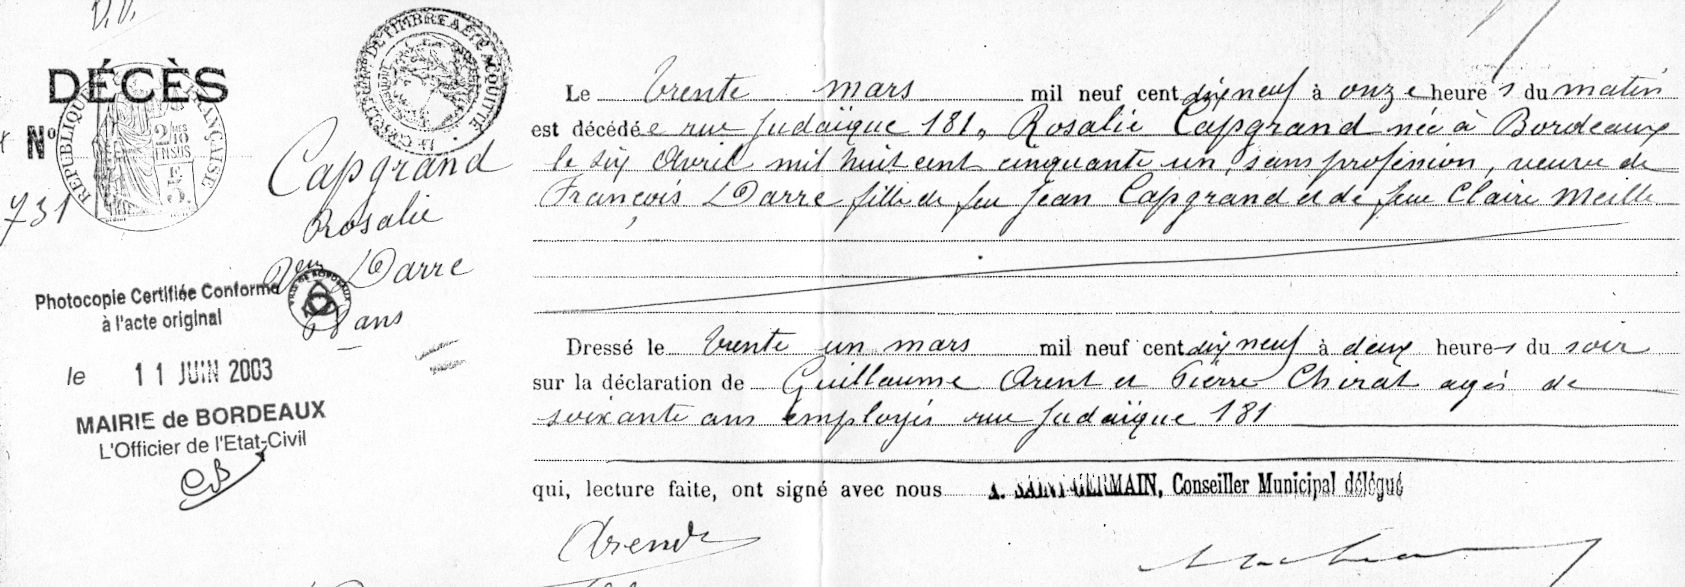 D.D.
DÉCÈS
Nº
731
RÉPUBLIQUE FRANÇAISE
2/10 EN SUS
DE TIMBRE A ÉTÉ ACQUITTÉ
Capgrand
Rosalie
Veuve Darre
68 ans
Photocopie Certifiée Conforme
à l'acte original
le 11 JUIN 2003
MAIRIE de BORDEAUX
L'Officier de l'Etat-Civil
VILLE DE BORDEAUX
Le trente mars mil neuf cent dix neuf à onze heures du matin
est décédée rue Judaïque 181, Rosalie Capgrand née à Bordeaux
le six Avril mil huit cent cinquante un, sans profession, veuve de
François Darre fille de feu Jean Capgrand et de feue Claire Meille
Dressé le trente un mars mil neuf cent dix neuf à deux heures du soir
sur la déclaration de Guillaume Arent et Pierre Chirat agés de
soixante ans employés rue Judaïque 181
qui, lecture faite, ont signé avec nous A. SAINT-GERMAIN, Conseiller Municipal délégué